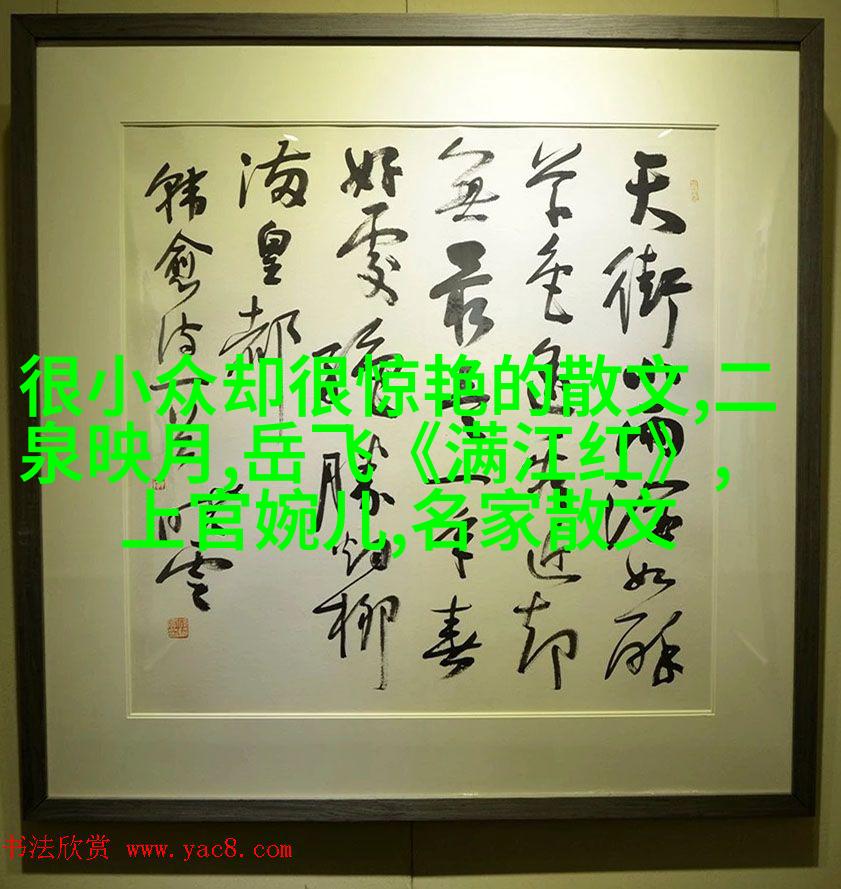 天街小雨潤如酥
草色遥看近却
無最是一年春
好處絶勝烟柳
滿皇都
韓愈詩
很小众却很惊艳的散文,二
泉映月,岳飞《满江红》,
上官婉儿,名家散文
书法欣赏 www.yac8.com